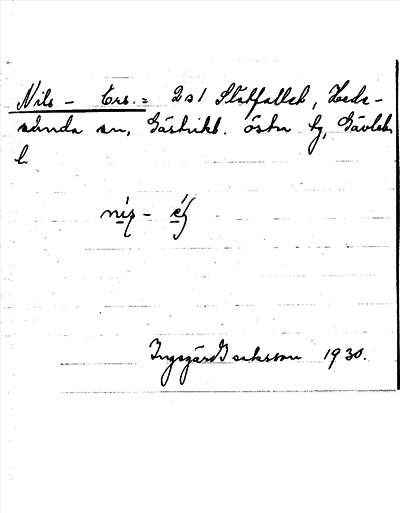 Nils - Ers. = 2 a 1 Ståtfallet, Hede-
sunda sn, Gästrikl. östra tg, Gävleb.
l.
Ingegärd Isaksson 1930.